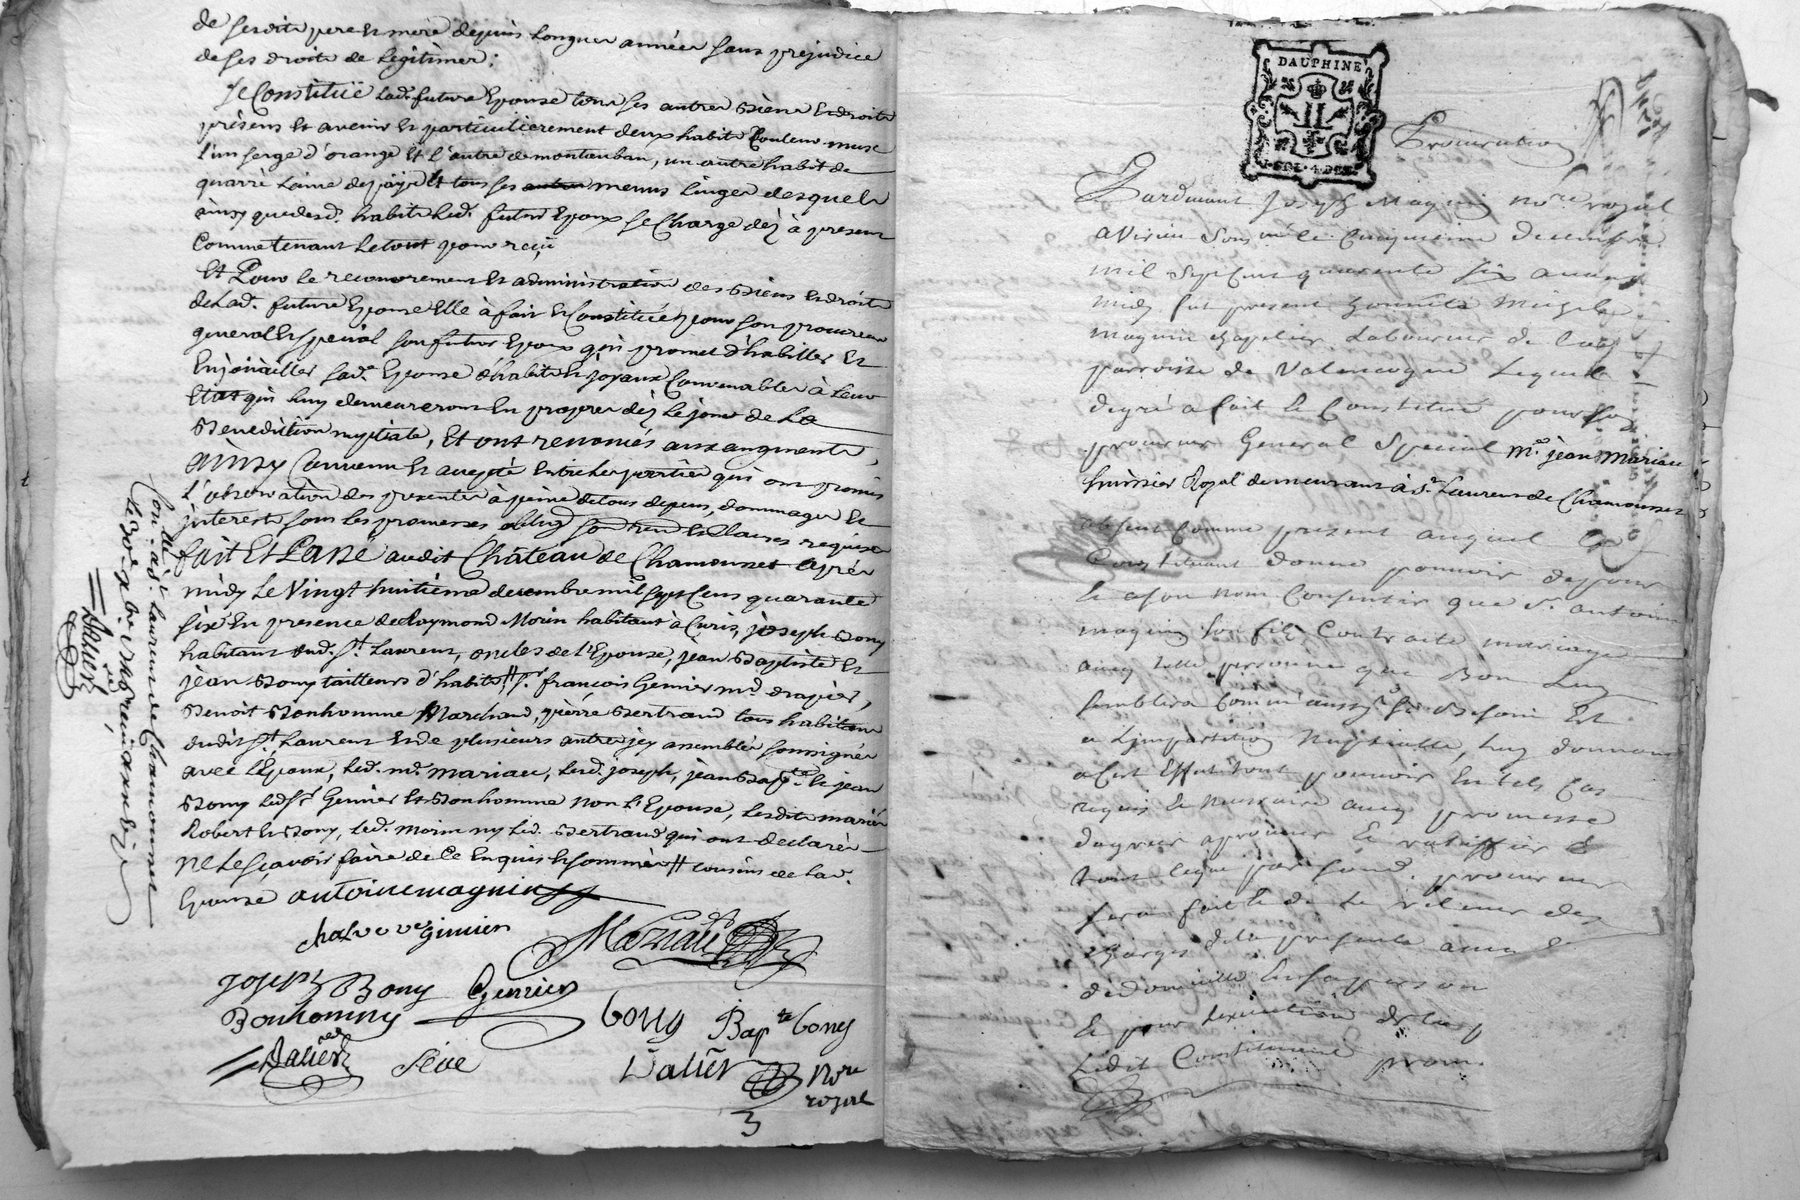 de sesdits pere et mere depuis longues années sans prejudice
de ses droits de legitimes;
Se Constitüe lad. future Epouse tous ses autres biens et droits
présens et avenir et particulierement deux habits Couleur musc
l'un serge d'orange et l'autre de montauban, un autre habit de
quarré laine du païs et tous ses menus linges desquels
ainsy que desd. habits led. futur Epoux se Charge déz à present
Comme tenant le tout pour reçu,
Et Pour le recouvrement et administration des biens et droits
de lad. future Epouse Elle à fait et Constitüé pour son procureur
general et special son futur Epoux qui promet d'habiller et
Enjoüailler sad.e Epouse d'habits et joyaux Convenables à leur
Etat qui luy demeureront En propres déz le jour de la
Benediction nuptiale, Et ont renoncés aux augments,
ainsy Convenu et accepté entre les parties qui ont promis
l'observation des presentes à peine de tous depens, dommages et
interests sous les promesses oblig. et Clauses requises
fait Et Passé audit Château de Chamousset Après
midy le Vingt huitiéme decembre mil sept Cens quarante
six En presence de Raymond Morin habitant à Curis, joseph Bony
habitant aud. St. Laurent, oncles de l'Epouse, jean Baptiste et
jean Bony tailleurs d'habits, // Sr. françois Genier md. drapier,
Benoît Bonhomme Marchand, pièrre Bertrand tous habitans
audit St. Laurent et de plusieurs autres jcy assemblés soussignés
avec l'Epoux, led. mr. mariau, lesd. joseph, jean Bapte. et jean
Bony led. Sr. Genier et Bonhomme non l'Epouse, lesdits mariés
Robert et Bony, led. Morin ny led. Bertrand qui ont declarés
ne le sçavoir faire de Ce Enquis et sommés // cousins de lad.
Epouse antoine magnin
chalvo ve Ginier
Mariau
joseph Bony Genier
Bonhomme bony Bapte bony
Dalier Séve Dalier Nore
royal
3
Con.lé à St. Laurent de Chamousset
le
Dalier
DAUPHINE
SOL. 4. DEN.
Procuration
Pardevant Joseph Magnin Nore royal
a Virieu Soussigné le Cinquieme decembre
mil Sept Cent quarente Six avant
midy fut present honnête Michel
magnin chapelier Laboureur de la
parroisse de Valencogne Lequel de
degré a fait et Constitué pour son
procureur General Special me. jean Mariau
huissier Royal demeurant à St. Laurent de Chamousset
absent Comme present auquel led
Constituant donne pouvoir de pour
et a son nom Consentir que Sr. antoine
magnin Son fils Contracte mariage
avec telle personne que Bon luy
Semblera Comme aussy Si Besoin Est
a L'impartition Nuptialle, luy donnant
a Cest Effet tout pouvoir En tels Cas
requis et necessaire avec promesse
d'agreer aprouver et ratiffier
tout Ceque par sond. procureur
Sera fait et de le relever des
charges de la presente avec
de domicille En sa personne
et pour L'execution de tout
Ledit Constituant prom.